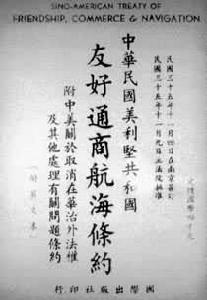 SINO-AMERICAN TREATY OF
FRIENDSHIP, COMMERCE & NAVIGATION
民國三十五年十一月四日在南京簽訂
民國三十五年十一月九日立法院批准
中華民國美利堅共和國
友好通商航海條約
附中美關於取消在華治外法權
及其他處理有關問題條約
附英文本
國際出版社印行